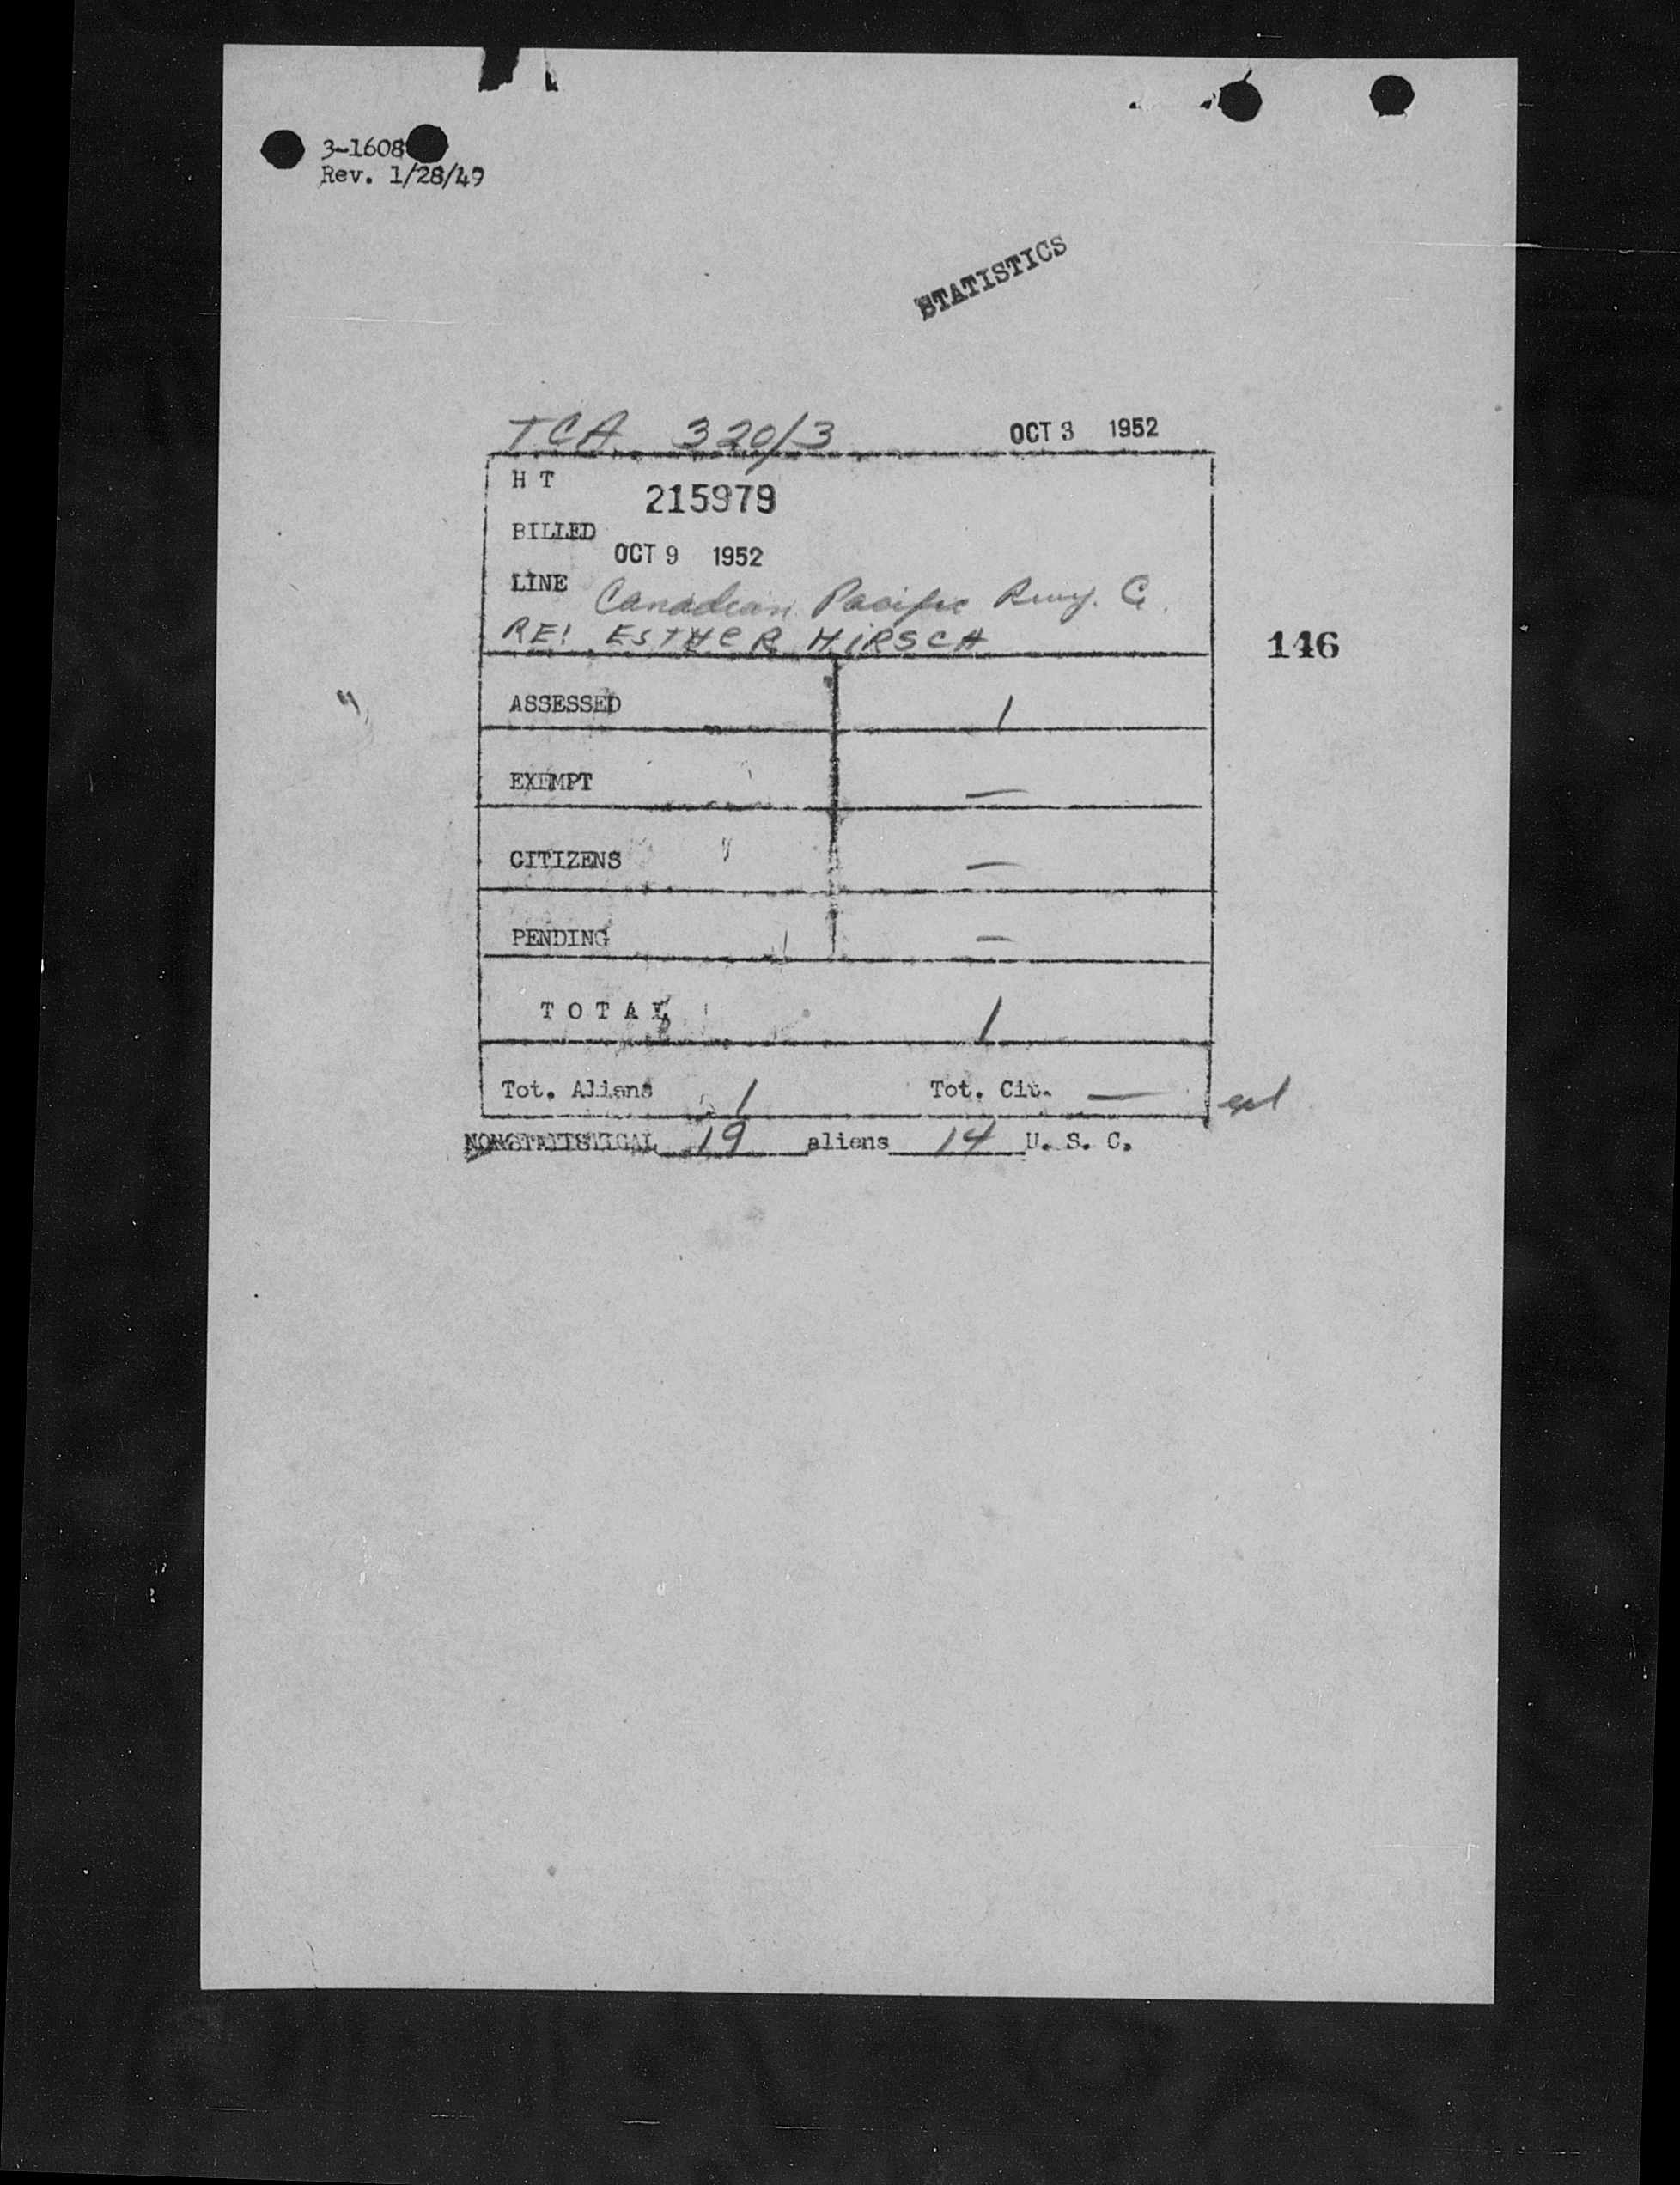 3-1608
Rev. 1/28/49
STATISTICS
TCA 320/3 OCT 3 1952
H T 215979
BILLED OCT 9 1952
LINE Canadian Pacific Rwy. Co.
RE: ESTHER HIRSCH
146
ASSESSED 1
EXEMPT —
CITIZENS —
PENDING —
TOTAL 1
Tot. Aliens 1 Tot. Cit. —
NONSTATISTICAL 19 aliens 14 U. S. C.